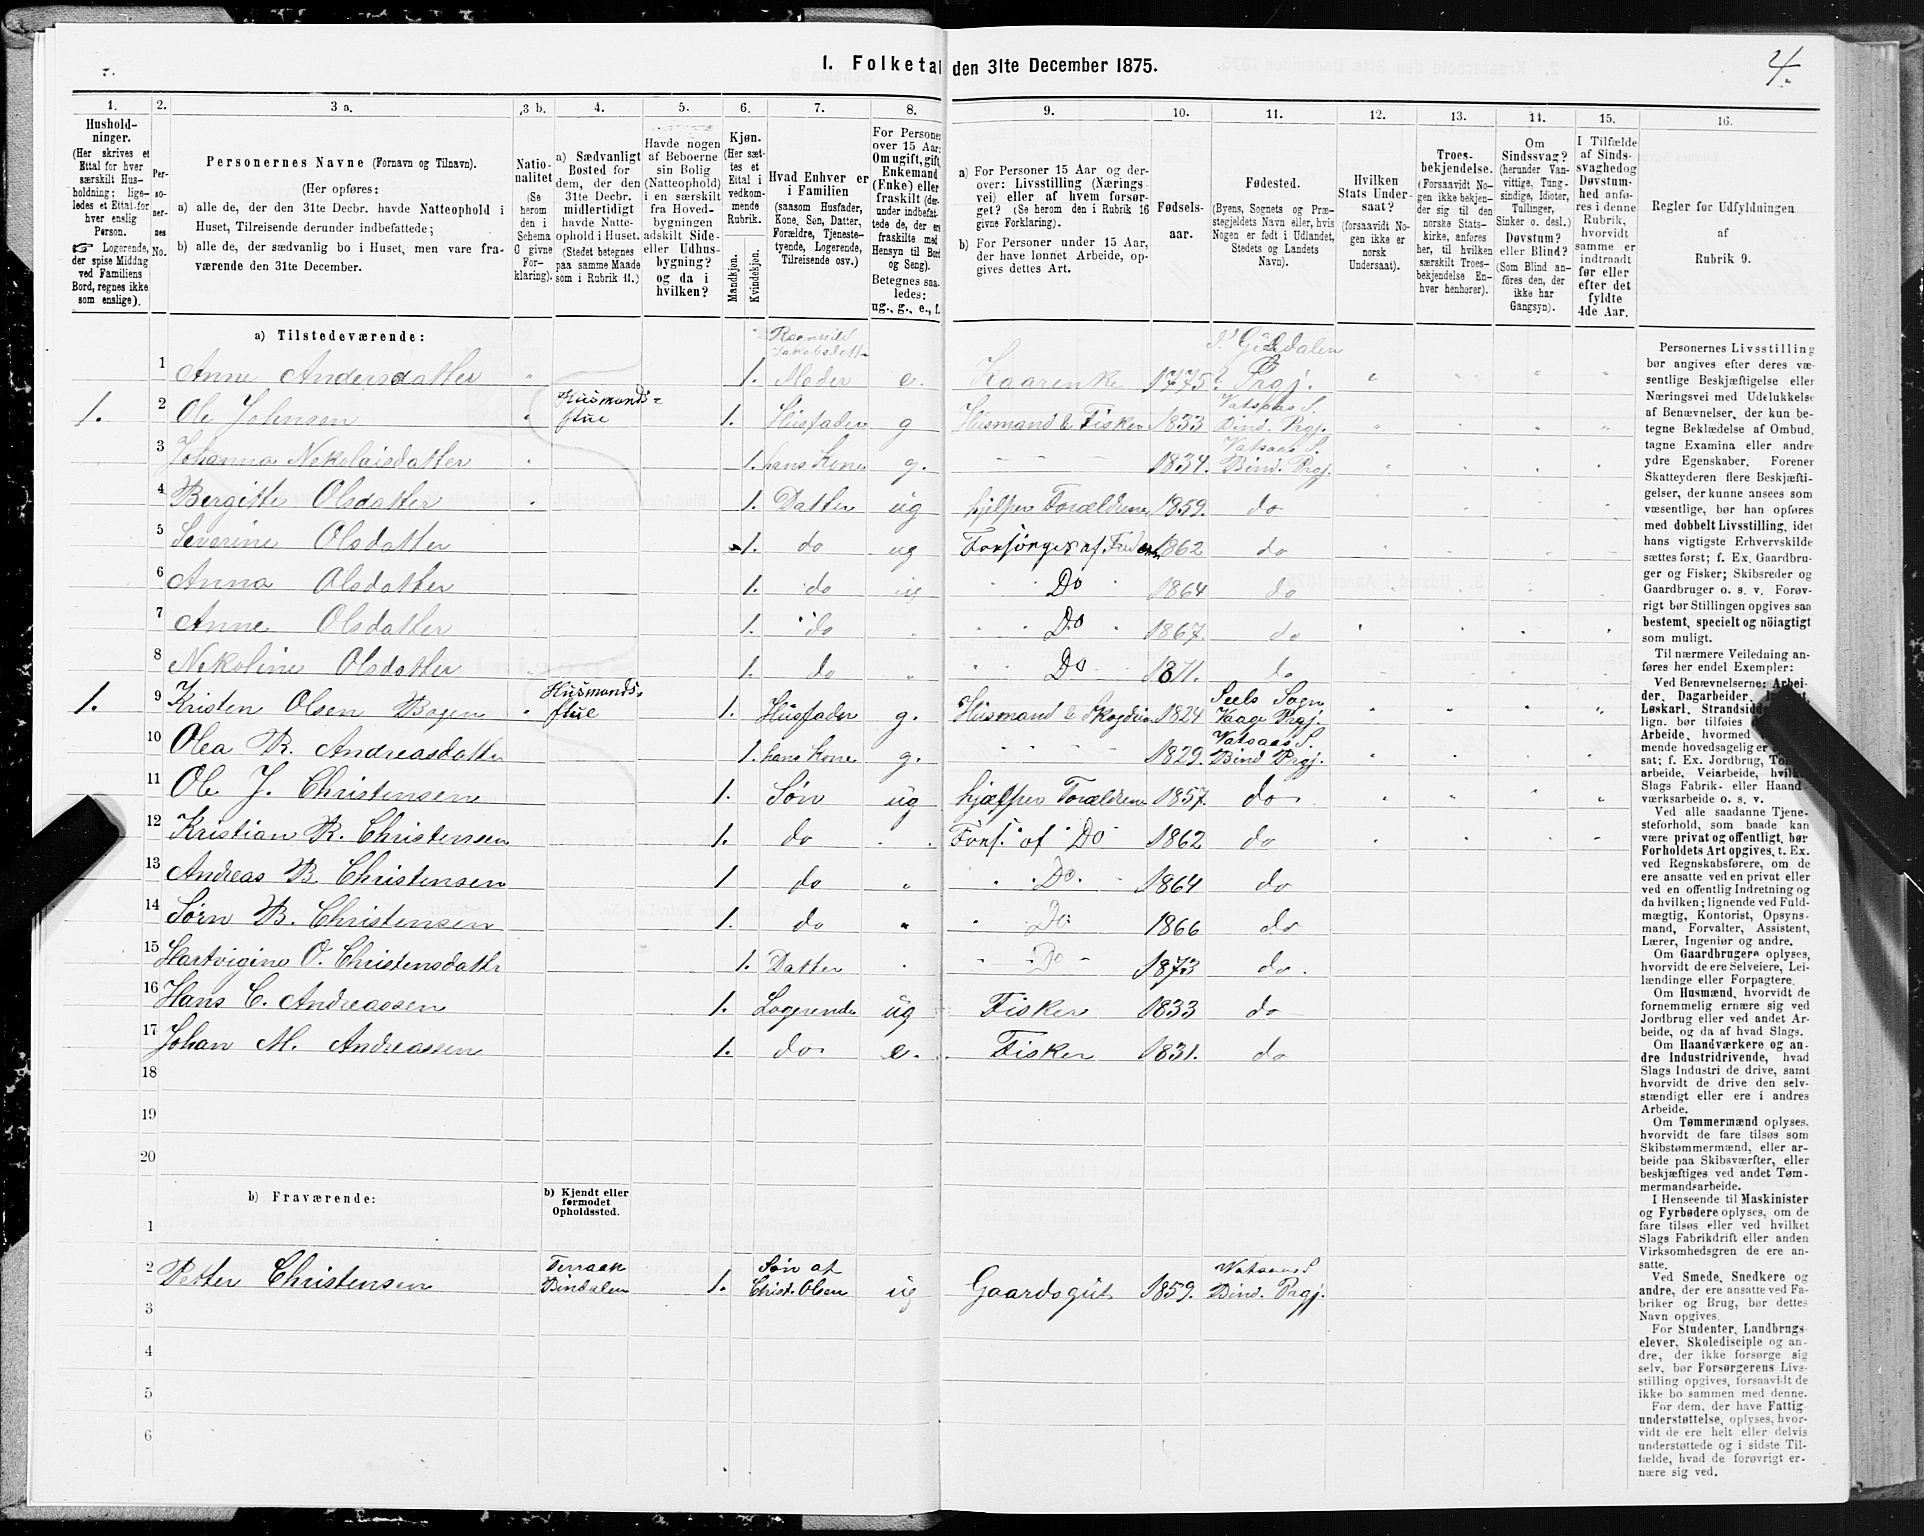 1. Folketal den 31te December 1875.
4.
1.
2.
3 a.
3 b.
4.
5.
6.
7.
8.
9.
10.
11.
12.
13.
14.
15.
16.
Hushold-
ninger.
(Her skrives et
Ettal for hver
særskilt Hus-
holdning; lige-
ledes et Ettal for
hver enslig
Person.
Logerende,
der spise Middag
ved Familiens
Bord, regnes ikke
som enslige).
Per-
so-
ner-
nes
No.
Personernes Navne (Fornavn og Tilnavn).
(Her opføres:
a) alle de, der den 31te Decbr. havde Natteophold i
Huset, Tilreisende derunder indbefattede;
b) alle de, der sædvanlig bo i Huset, men vare fra-
værende den 31te December.
Natio-
nalitet
(Se
herom
den i
Schema
C givne
For-
klaring).
a) Sædvanligt
Bosted for
dem, der den
31te Decbr.
midlertidigt
havde Natte-
ophold i Huset.
(Stedet betegnes
paa samme Maade
som i Rubrik 11.)
Havde nogen
af Beboerne
sin Bolig
(Natteophold)
i en særskilt
fra Hoved-
bygningen
adskilt Side-
eller Udhus-
bygning?
og da i
hvilken?
Kjøn.
(Her sæt-
tes et
Ettal i
vedkom-
mende
Rubrik.
Mandkjøn.
Kvindekjøn.
Hvad Enhver er
i Familien
(saasom Husfader,
Kone, Søn, Datter,
Forældre, Tjeneste-
tyende, Logerende,
Tilreisende osv.)
For Personer
over 15 Aar:
Om ugift, gift,
Enkemand
(Enke) eller
fraskilt (der-
under indbefat-
tede de, der ere
fraskilte med
Hensyn til Bord
og Seng).
Betegnes saa-
ledes:
ug., g., e., f.
a) For Personer 15 Aar og der-
over: Livsstilling (Nærings-
vei) eller af hvem forsør-
get? (Se herom den i Rubrik 16
givne Forklaring).
b) For Personer under 15 Aar,
der have lønnet Arbeide, op-
gives dettes Art.
Fødsels-
aar.
Fødested.
(Byens, Sognets og Præ-
stegjeldets Navn eller, hvis
Nogen er født i Udlandet,
Stedets og Landets
Navn).
Hvilken
Stats Under-
saat?
(forsaavidt No-
gen ikke er
norsk
Undersaat).
Troes-
bekjendelse.
(Forsaavidt No-
gen ikke bekjen-
der sig til den
norske Stats-
kirke, anføres
her, til hvilken
særskilt Troes-
bekjendelse En-
hver henhører).
Om
Sindssvag?
(herunder Van-
vittige, Tung-
sindige, Idioter,
Tullinger,
Sinker o. desl.)
Døvstum?
eller Blind?
(Som Blind an-
føres den, der
ikke har
Gangsyn).
I Tilfælde
af Sinds-
svaghed og
Døvstum-
hed anfø-
res i denne
Rubrik,
hvorvidt
samme er
indtraadt
før eller
efter det
fyldte
4de Aar.
Regler for Udfyldningen
af
Rubrik 9.
a) Tilstedeværende:
1 Anne Andersdatter 1. Moder e. Kaarenke 1775 Prgj.
1. 2 Ole Johnsen Husmands-
stue 1. Husfader g Husmand & Fisker 1833 Vatsaas S.
Bind. Prgj.
3 Johanna Nekolaisdatter 1. hans Kone g. 1834. Vatsaas S.
Bind. Prgj.
4 Bergitte Olsdatter 1. Datter ug hjelper Forældrene 1859. do
5 Severine Olsdatter 1. do ug Forsørges af Faderen 1862 do
6 Anna Olsdatter 1. do ug Do 1864 do
7 Anne Olsdatter 1. do Do 1867. do
8 Nekoline Olsdatter 1. do Do 1871. do
1. 9 Kristen Olsen Bogen Husmands-
stue 1. Husfader g. Husmand & 1824 Seels Sogn
Vaage Prgj.
10 Olea R. Andreasdatter 1. hans Kone g. 1829. Vatsaas S.
Bind Prgj.
11 Ole J. Christensen 1. Søn ug hjælper Forældrene 1857 do
12 Kristian R. Christensen 1. do Fors. af Do 1862 do
13 Andreas B. Christensen 1 do Do. 1864 do
14 Sørn B. Christensen 1. do Do 1866 do
15 Hartvigine O. Christensdattr 1. Datter Do 1873 do.
16 Hans C. Andreassen 1. Logerende ug Fisker 1833 do
17 Johan M. Andreassen 1. do e. Fisker 1831. do
18
19
20
b) Fraværende:
b) Kjendt eller
formodet
Opholdssted.
1
2 Petter Christensen Terraak
Bindalen 1. Søn af
Christ. Olsen ug Gaardsgut 1859. Vatsaas S
Bind. Prgj.
3
4
5
6
Personernes Livsstilling
bør angives efter deres væ-
sentlige Beskjæftigelse eller
Næringsvei med Udelukkelse
af Benævnelser, der kun be-
tegne Beklædelse af Ombud,
tagne Examina eller andre
ydre Egenskaber. Forener
Skatteyderen flere Beskjæfti-
gelser, der kunne ansees som
væsentlige, bør han opføres
med dobbelt Livsstilling, idet
hans vigtigste Erhvervskilde
sættes først; f. Ex. Gaardbru-
ger og Fisker; Skibsreder og
Gaardbruger o. s. v. Forøv-
rigt bør Stillingen opgives saa
bestemt, specielt og nøiagtigt
som muligt.
Til nærmere Veiledning an-
føres her endel Exempler:
Ved Benævnelserne: Arbei-
der, Dagarbeider,
Løskarl, Strandsid
lign. bør tilføies
Arbeide, hvormed
mende hovedsagelig er
sat; f. Ex. Jordbrug,
arbeide, Veiarbeide, hvilket
Slags Fabrik- eller Haand-
værksarbeide o. s. v.
Ved alle saadanne Tjene-
steforhold, som baade kan
være privat og offentligt, bør
Forholdets Art opgives, t. Ex.
ved Regnskabsførere, om de
ere ansatte ved en privat eller
ved en offentlig Indretning og
da hvilken; lignende ved Fuld-
mægtig, Kontorist, Opsyns-
mand, Forvalter, Assistent,
Lærer, Ingeniør og andre.
Om Gaardbrugere oplyses,
hvorvidt de ere Selveiere, Lei-
lændinge eller Forpagtere.
Om Husmænd, hvorvidt de
fornemmelig ernære sig ved
Jordbrug eller ved andet Ar-
beide, og da af hvad Slags.
Om Haandværkere og an-
dre Industridrivende, hvad
Slags Industri de drive, samt
hvorvidt de drive den selv-
stændigt eller ere i andres
Arbeide.
Om Tømmermænd oplyses,
hvorvidt de fare tilsøs som
Skibstømmermænd, eller ar-
beide paa Skibsværfter, eller
beskjæftiges ved andet Tøm-
mermandsarbeide.
I Henseende til Maskinister
og Fyrbødere oplyses, om de
fare tilsøs eller ved hvilket
Slags Fabrikdrift eller anden
Virksomhedsgren de ere an-
satte.
Ved Smede, Snedkere og
andre, der ere ansatte ved Fa-
briker og Brug, bør dettes
Navn opgives.
For Studenter, Landbrugs-
elever, Skoledisciple og an-
dre, der ikke forsørge sig
selv, bør Forsørgerens Livs-
stilling opgives, forsaavidt de
ikke bo sammen med denne.
For dem, der have Fattig-
understøttelse, oplyses, hvor-
vidt de ere helt eller delvis
understøttede og i sidste Til-
fælde, hvad de forøvrigt er-
nære sig ved.